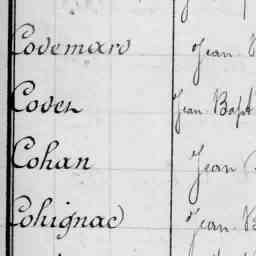 Codemard Jean
Coden Jean Bapt
Cohan Jean
Cohignac Jean B